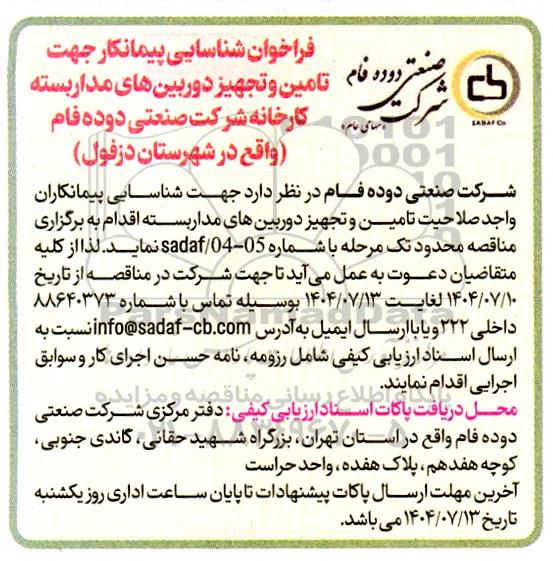 فراخوان شناسایی پیمانکار جهت
تامین و تجهیز دوربین های مداربسته
کارخانه شرکت صنعتی دوده فام
(واقع در شهرستان دزفول)
شرکت صنعتی دوده فام
(سهامی عام)
SADAF Co
شرکت صنعتی دوده فام در نظر دارد جهت شناسایی پیمانکاران
واجد صلاحیت تامین و تجهیز دوربین های مداربسته اقدام به برگزاری
مناقصه محدود تک مرحله با شماره sadaf/04-05 نماید. لذا از کلیه
متقاضیان دعوت به عمل می آید تا جهت شرکت در مناقصه از تاریخ
۱۴۰۴/۰۷/۱۰ لغایت ۱۴۰۴/۰۷/۱۳ بوسیله تماس با شماره ۸۸۶۴۰۳۷۳
داخلی ۲۲۲ و یا با ارسال ایمیل به آدرس info@sadaf-cb.com نسبت به
ارسال اسناد ارزیابی کیفی شامل رزومه، نامه حسن اجرای کار و سوابق
اجرایی اقدام نمایند.
محل دریافت پاکات اسناد ارزیابی کیفی: دفتر مرکزی شرکت صنعتی
دوده فام واقع در استان تهران، بزرگراه شهید حقانی، گاندی جنوبی،
کوچه هفدهم، پلاک هفده، واحد حراست
آخرین مهلت ارسال پاکات پیشنهادات تا پایان ساعت اداری روز یکشنبه
تاریخ ۱۴۰۴/۰۷/۱۳ می باشد.
ParsNamadData
پایگاه اطلاع رسانی مناقصه و مزایده